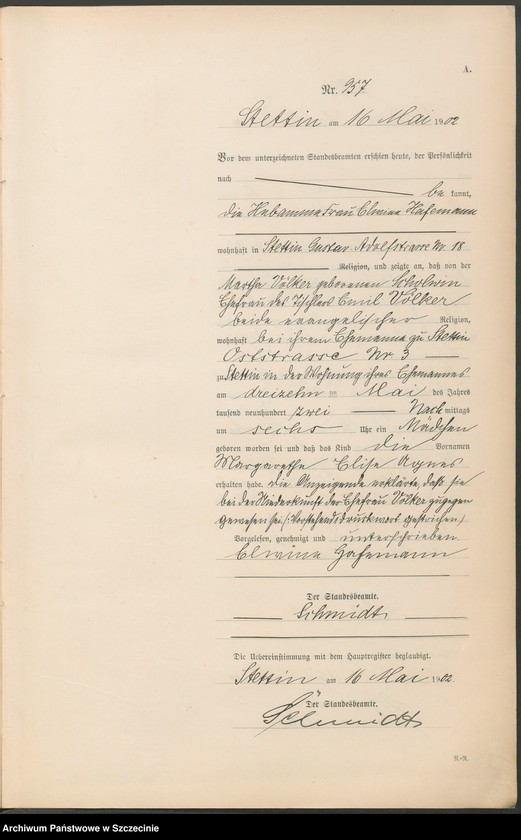 A.
Nr. 957
Stettin am 16 Mai 1902
Vor dem unterzeichneten Standesbeamten erschien heute, der Persönlichkeit
nach
be kannt,
die Hebamme Frau Elwine Hafemann
wohnhaft in Stettin Gustav-Adolfstrasse Nr. 18
Religion, und zeigte an, daß von der
Martha Völker geborenen Scholwin
Ehefrau des Tischlers Emil Völker
beide evangelischer Religion,
wohnhaft bei ihrem Ehemanne zu Stettin
Oststrasse Nr 3
zu Stettin in der Wohnung ihres Ehemannes
am dreizehn ten Mai des Jahres
tausend neunhundert zwei Nach mittags
um sechs Uhr ein Mädchen
geboren worden sei und daß das Kind die Vornamen
Margarethe Elise Agnes
erhalten habe. Die Anzeigende erklärte, daß sie
bei der Niederkunft der Ehefrau Völker zugegen
gewesen sei (: Vorstehends Druckwort gestrichen.)
Vorgelesen, genehmigt und unterschrieben
Elwine Hafemann
Der Standesbeamte.
Schmidt
Die Uebereinstimmung mit dem Hauptregister beglaubigt.
Stettin am 16 Mai 1902
Der Standesbeamte.
Schmidt
R.-R.
Archiwum Państwowe w Szczecinie